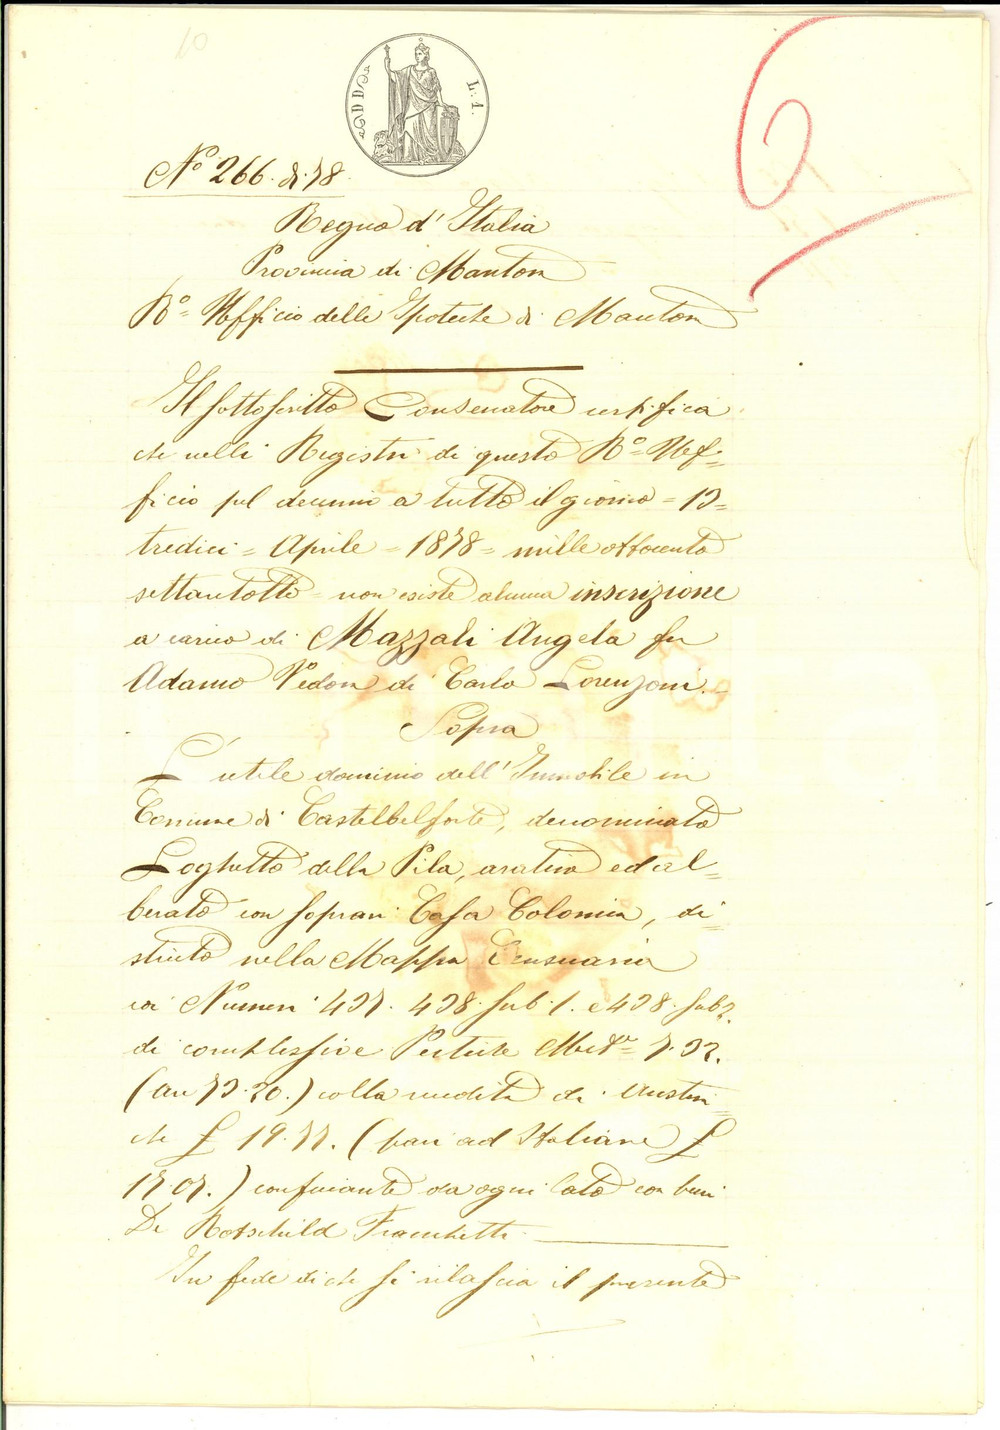 10
L. 1.
6
N.º 266. di 78.
Regno d'Italia
Provincia di Mantova
R.º Ufficio delle Ipoteche di Mantova
Il sottoscritto Conservatore certifica
che nelli Registri di questo R.º Uf=
ficio pel decennio a tutto il giorno = 13 =
tredici = Aprile = 1878 = mille ottocento
settantotto = non esiste alcuna inscrizione
a carico di Mazzali Angela fu
Adamo Vedova di Carlo Lorenzoni. -
Sopra
L'utile dominio dell'Immobile in
Comune di Castelbelforte, denominato
Loghetto della Pila, arativo ed al=
berato con sopravi Casa Colonica, di=
stinto nella Mappa Censuaria
coi Numeri 437. 438. sub. 1. e 438. sub 2.
di complessive Pertiche Metr.e 7. 32.
(are 73. 20.) colla rendita di Austria=
che £ 19. 77. (pari ad Italiane £
17. 07.) confinante da ogni lato con beni
De Rotschild Franchetti.
In fede di che si rilascia il presente